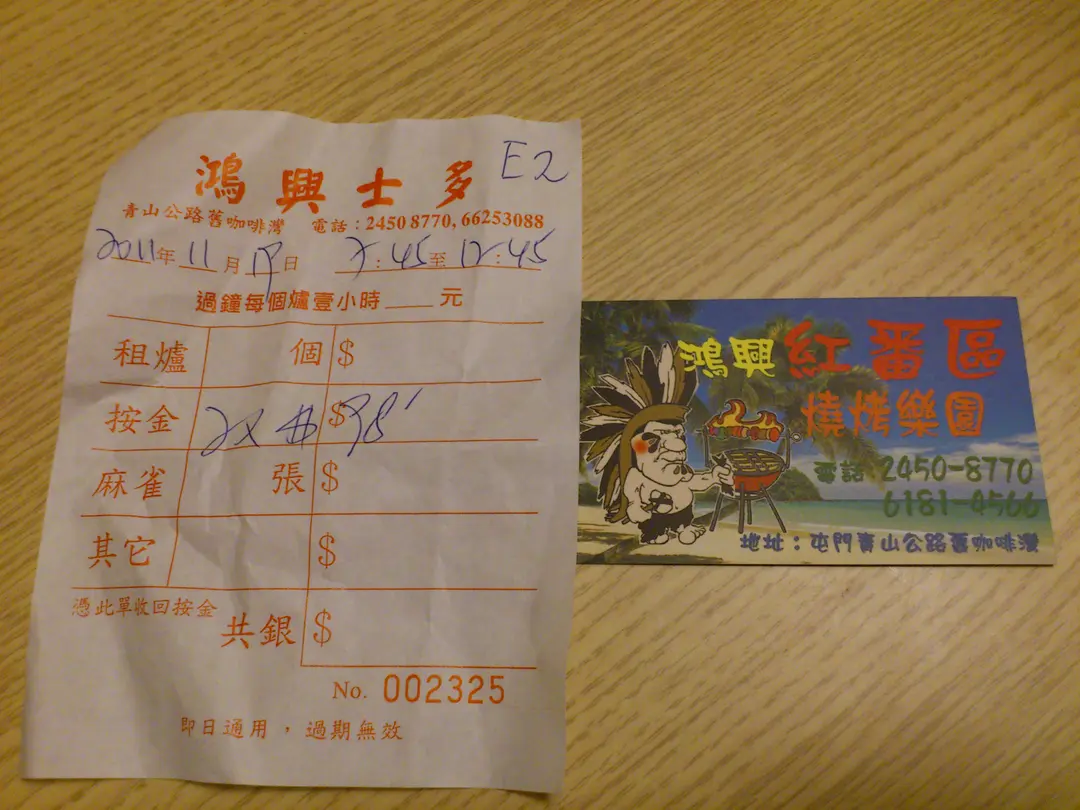 E2
鴻興士多
青山公路舊咖啡灣 電話：2450 8770, 66253088
2011年 11月 日 7:45至12:45
過鐘每個爐壹小時____元
租爐 個 $
按金 2X $ $98
麻雀 張 $
其它 $
憑此單收回按金
共銀 $
No. 002325
即日通用，過期無效
鴻興紅番區
燒烤樂園
電話：2450-8770
6181-4566
地址：屯門青山公路舊咖啡灣